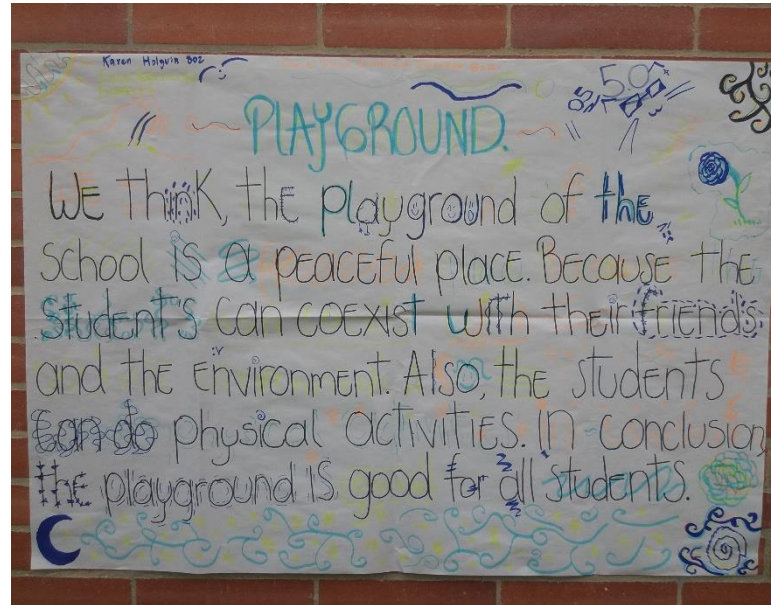 Karen Holguin 802
5.0
PLAYGROUND.
WE think, the playground of the
school is a peaceful place. Because the
student's can coexist with their friends
and the environment. Also, the students
can do physical activities. In conclusion,
the playground is good for all students.